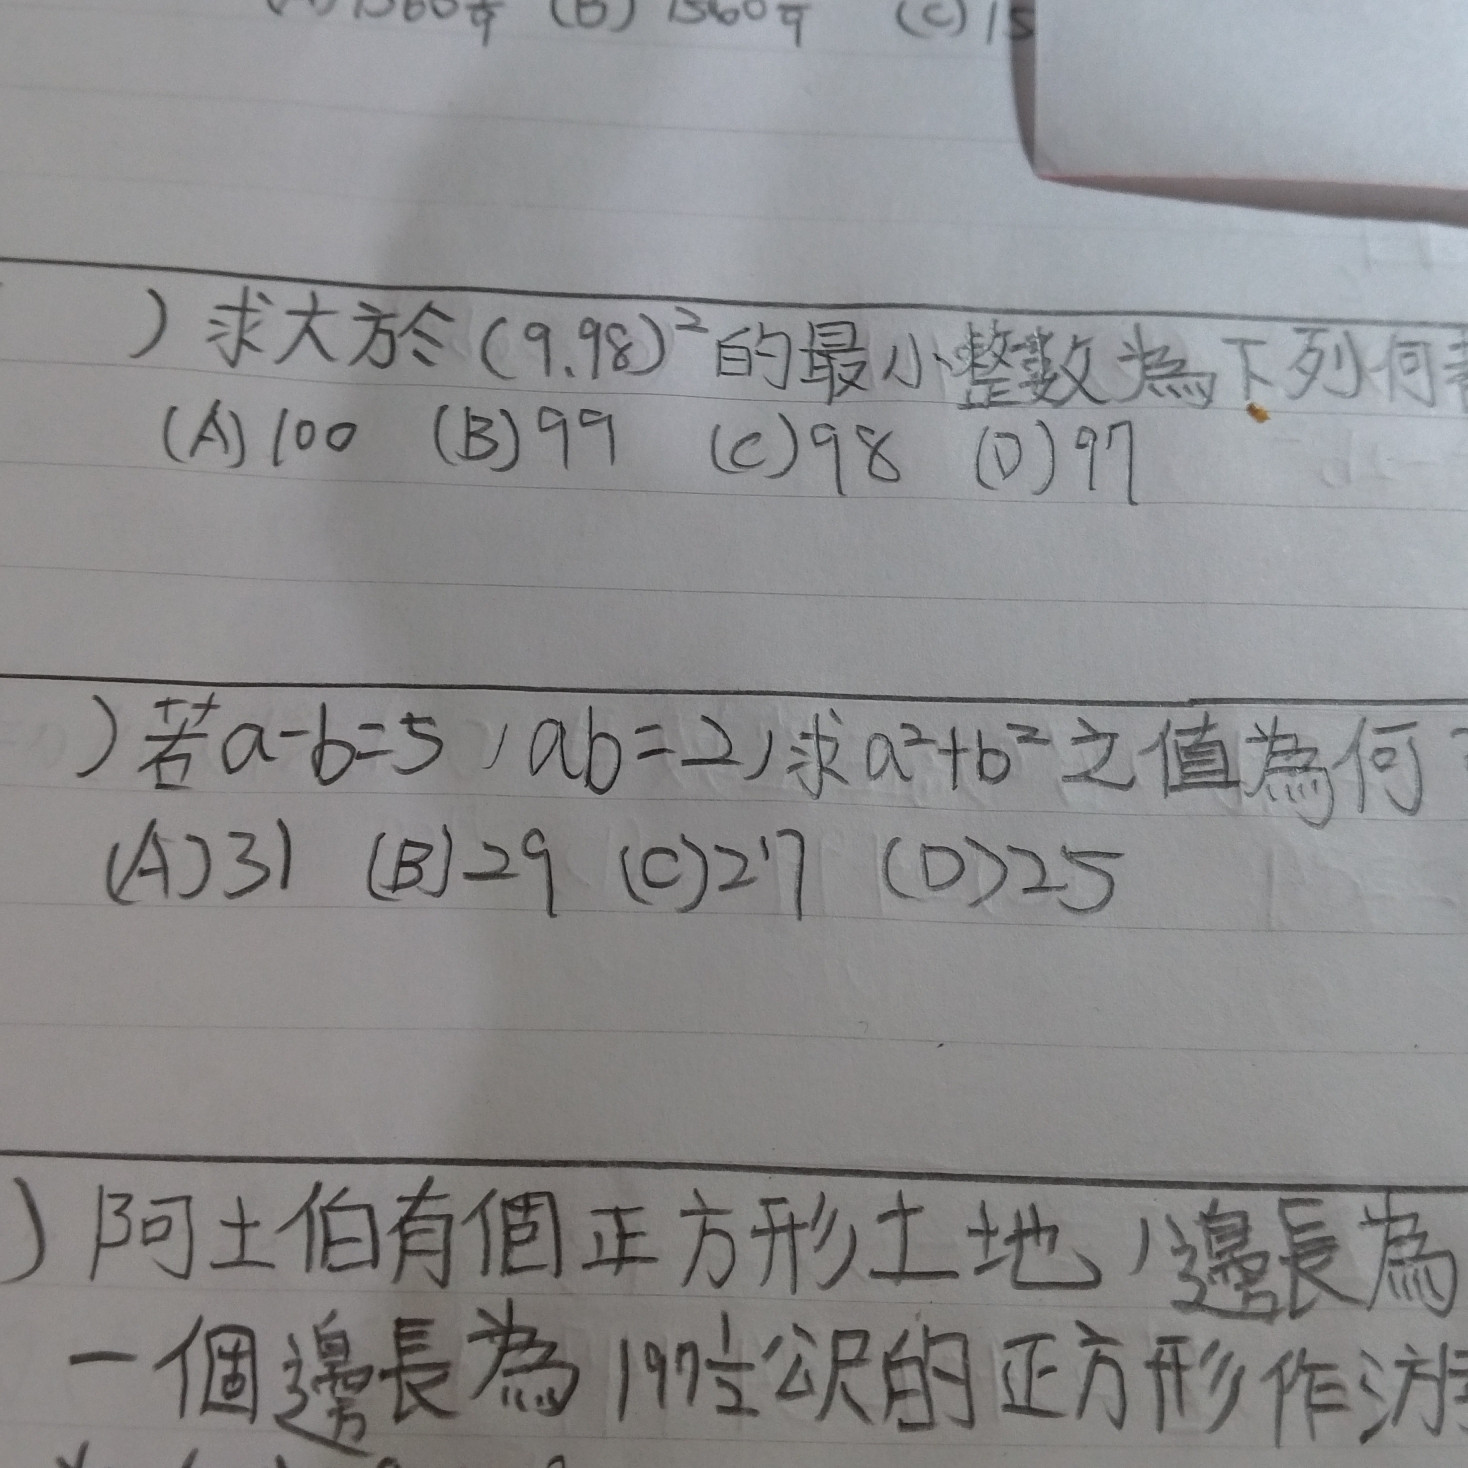 (B) 1560 (C) 15
) 求大於(9.98)²的最小整數為下列何
(A) 100 (B) 99 (C) 98 (D) 97
) 若a-b=5，ab=2，求a²+b²之值為何？
(A) 31 (B) 29 (C) 27 (D) 25
) 阿土伯有個正方形土地，邊長為
一個邊長為197½公尺的正方形作游